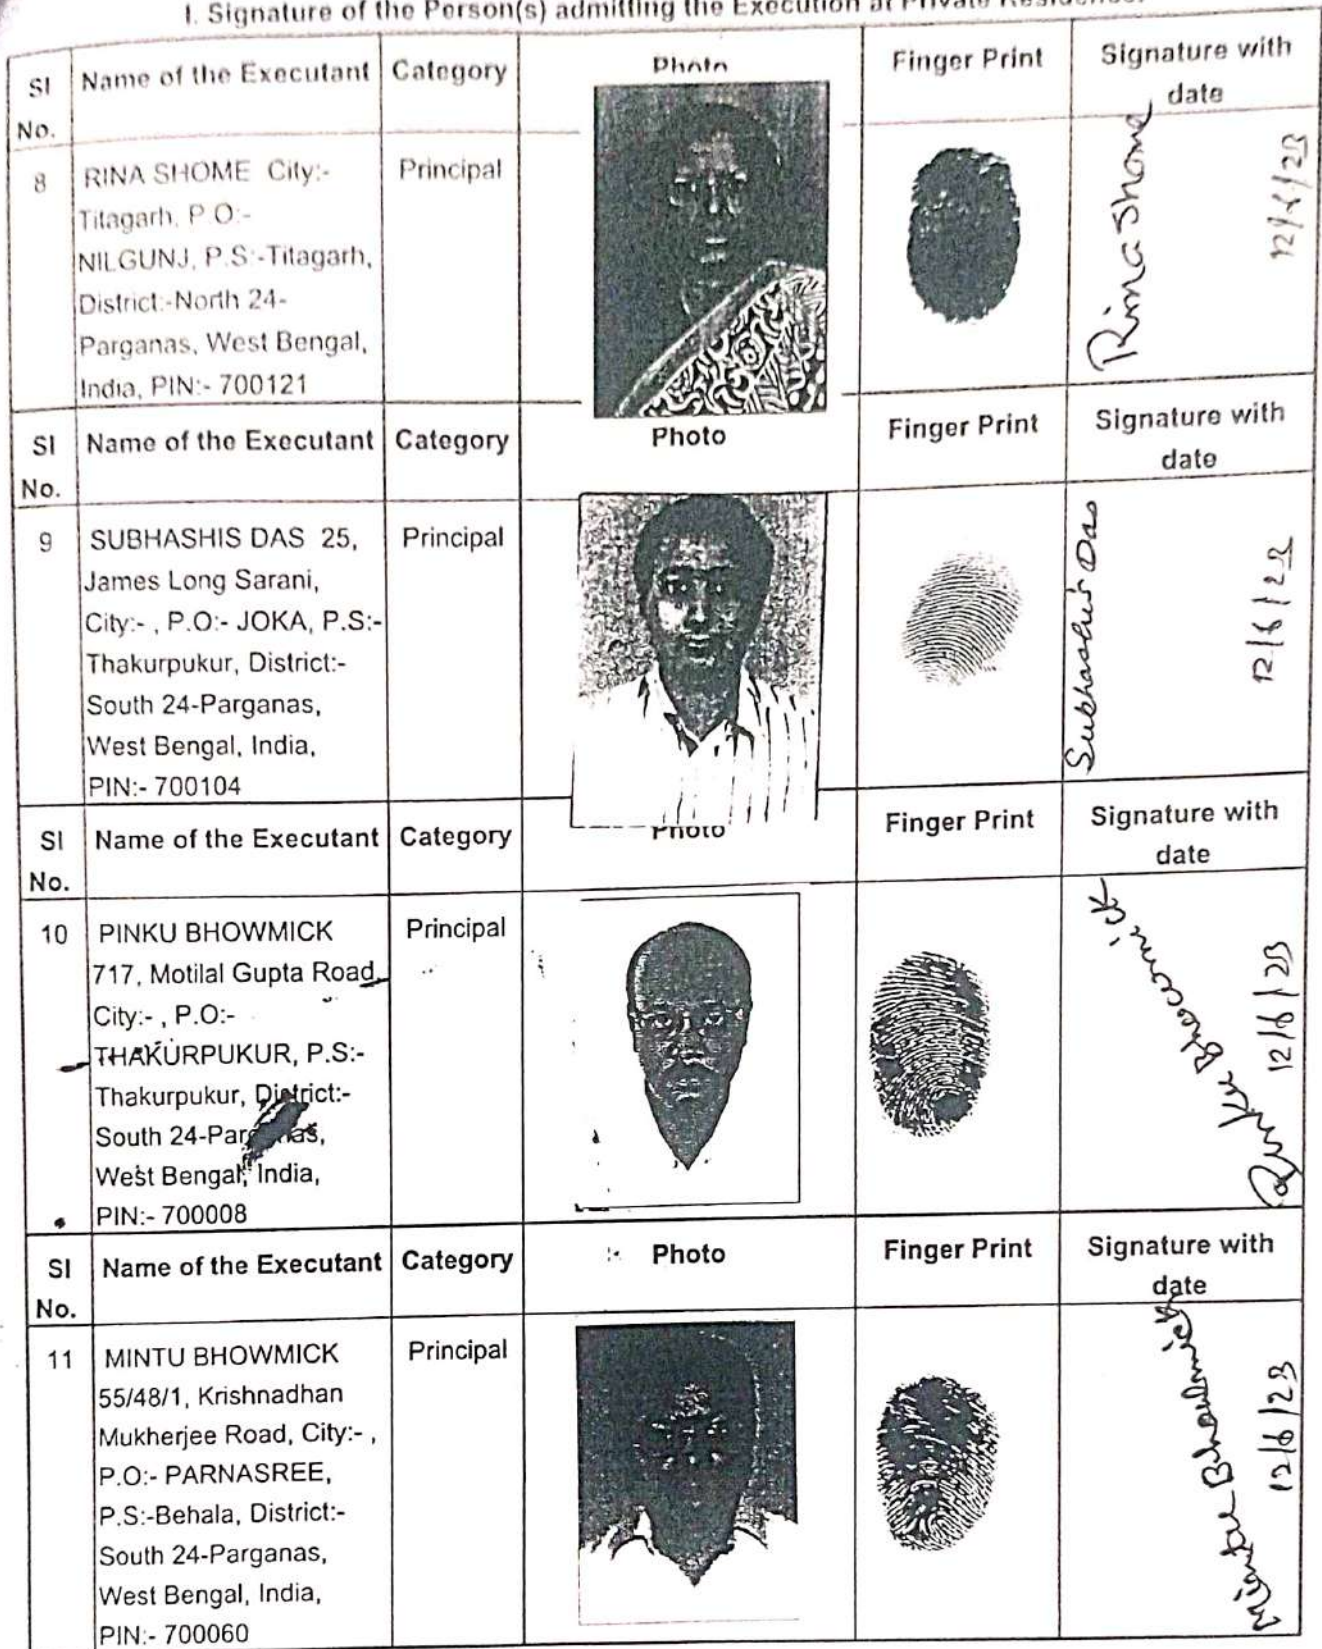 I. Signature of the Person(s) admitting the Execution at Private Residence.
Sl No. Name of the Executant Category Photo Finger Print Signature with date
8 RINA SHOME City:- Principal
Titagarh, P.O:-
NILGUNJ, P.S:-Titagarh,
District:-North 24-
Parganas, West Bengal,
India, PIN:- 700121
Rina Shome
12/6/23
Sl No. Name of the Executant Category Photo Finger Print Signature with date
9 SUBHASHIS DAS 25, Principal
James Long Sarani,
City:- , P.O:- JOKA, P.S:-
Thakurpukur, District:-
South 24-Parganas,
West Bengal, India,
PIN:- 700104
Subhashis Das
12/6/23
Sl No. Name of the Executant Category Photo Finger Print Signature with date
10 PINKU BHOWMICK Principal
717, Motilal Gupta Road,
City:- , P.O:-
THAKURPUKUR, P.S:-
Thakurpukur, District:-
South 24-Parganas,
West Bengal, India,
PIN:- 700008
Pinku Bhowmick
12/6/23
Sl No. Name of the Executant Category Photo Finger Print Signature with date
11 MINTU BHOWMICK Principal
55/48/1, Krishnadhan
Mukherjee Road, City:- ,
P.O:- PARNASREE,
P.S:-Behala, District:-
South 24-Parganas,
West Bengal, India,
PIN:- 700060
Mintu Bhowmick
12/6/23